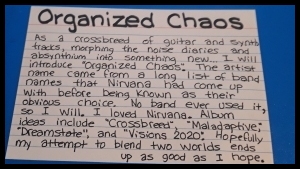 Organized Chaos
As a crossbreed of guitar and synth
tracks, morphing the noise diaries and
absynthium into something new. I will
introduce "Organized Chaos". The artist
name came from a long list of band
names that Nirvana had come up
with before being known as their
obvious choice. No band ever used it,
so I will. I loved Nirvana. Album
ideas include "Crossbreed", "Maladaptive,"
"Dreamstate", and "Visions 2020". Hopefully
my attempt to blend two worlds ends
up as good as I hope.